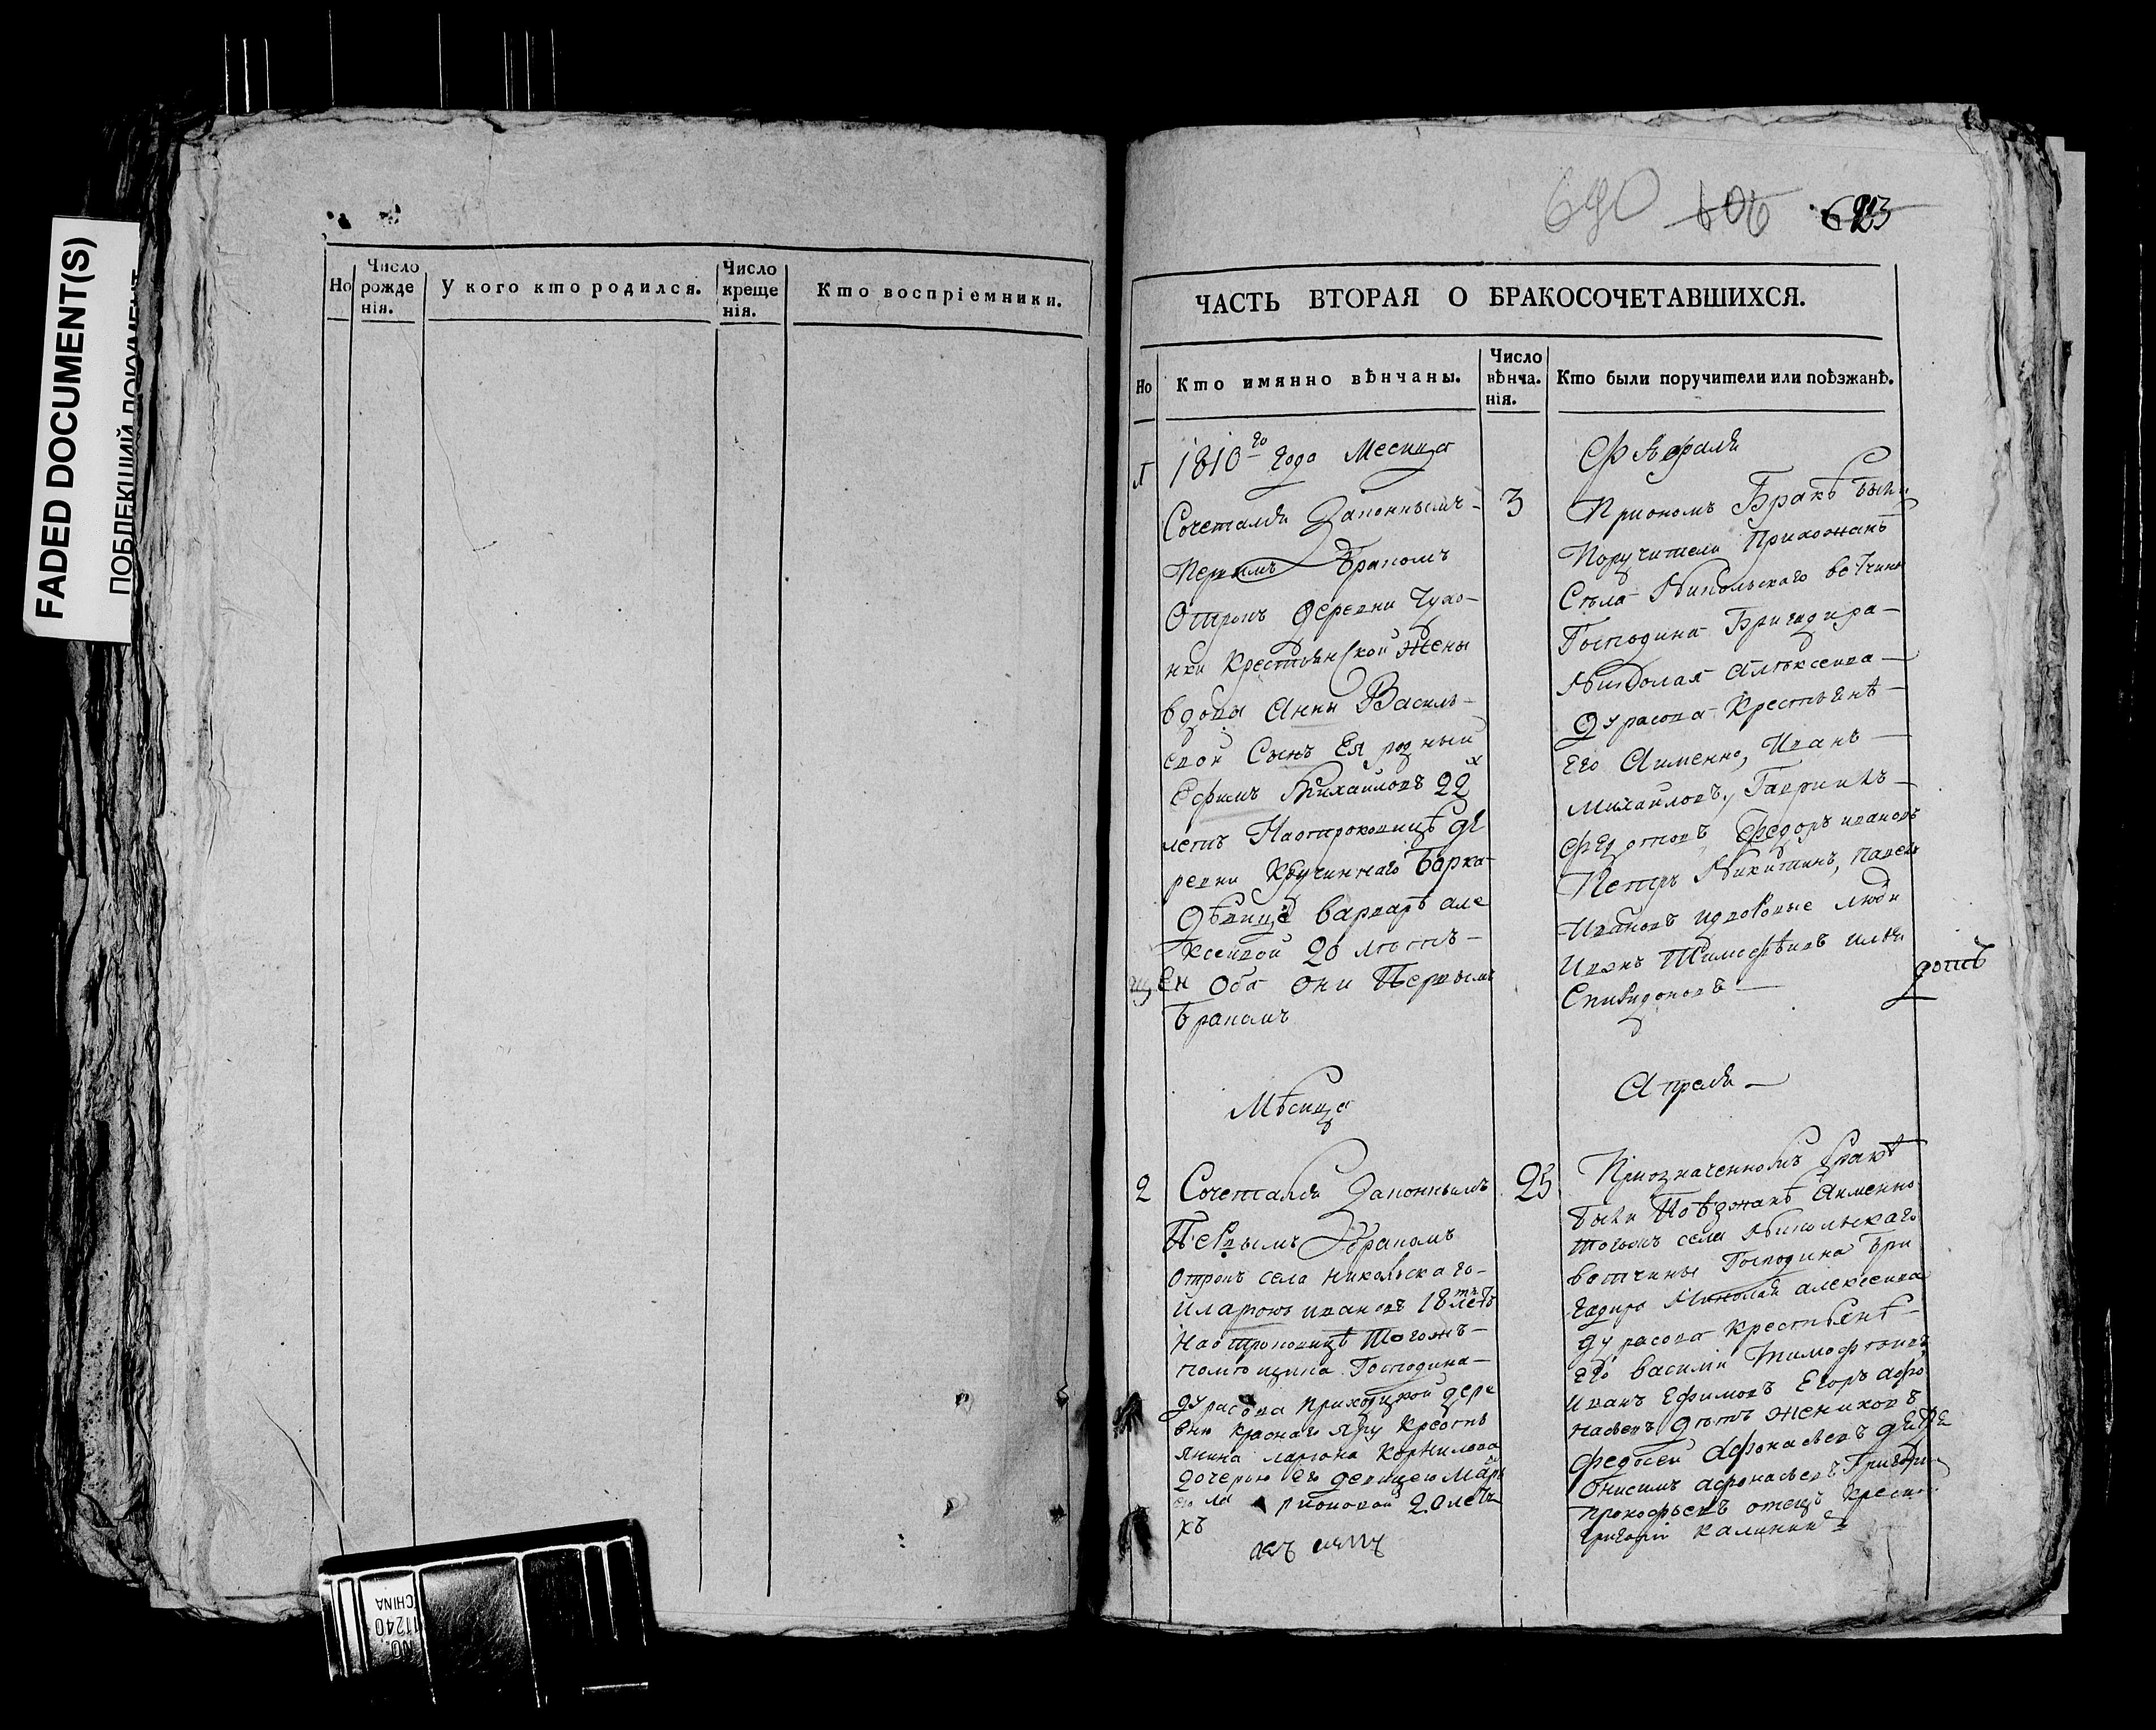 FADED DOCUMENT(S)
ПОБЛЕКШИЙ ДОКУМЕНТ
Но
Число рожденія.
У кого кто родился.
Число крещенія.
Кто воспріемники.
690 606 623
ЧАСТЬ ВТОРАЯ О БРАКОСОЧЕТАВШИХСЯ.
Но
Кто имянно вѣнчаны.
Число вѣнчанія.
Кто были поручители или поѣзжанѣ.
1810го года Месяца
Сочетался Законнымъ
Первымъ Бракомъ
Отрокъ деревни Чухо-
нки Крестьянской жены
вдовы Анны Василь-
евой Сынъ Ея родный
Ефимъ Михаиловъ 22х
летъ На отроковицѣ де
ревни Кручиннаго Барка
Дѣвицѣ варварѣ але
ксеивой 20 летъ
Оба они Первымъ
Бракомъ
3
Февраля
При ономъ Бракѣ были
Поручители Прихожанѣ
Села Никольскаго вотчины
Господина Бригадира
Николая Алексеива
Дурасова Крестьянѣ
Его Аименно, Иванъ
Михаиловъ, Гаврилъ
Федотовъ, Федоръ ивановъ
Петръ Никитинъ, Павелъ
Ивановъ идворовые люди
Иванъ Тимофѣивъ илья
Спиридоновъ
Мѣсяца
Апреля
2
Сочетался Законнымъ
Первымъ Бракомъ
Отрокъ села Никольскаго
Иларионъ ивановъ 18ть летъ
На отроковицѣ Тогожъ
помещика Господина
дурасова приходцкой дере
вни Краснаго Яру Кресть
янина лариона Корнилова
дочерью его девицею Марь
ею ла рионовой 20 летъ
хъ
25
При означенномъ Бракѣ
были Поѣзжанѣ Аименно
Тогожъ села Никольскаго
вотчины Господина Бри
гадира Николая алексеива
дурасова крестьянѣ
его василий Тимофѣивъ
иванъ Ефимовъ Егоръ афо
насьевъ дятъ жениховъ
Федосей Афонасьевъ дядя
Онисимъ афонасьевъ Григори
прокофьевъ отецъ крест
григорій калининъ
NO. 11240
CHINA